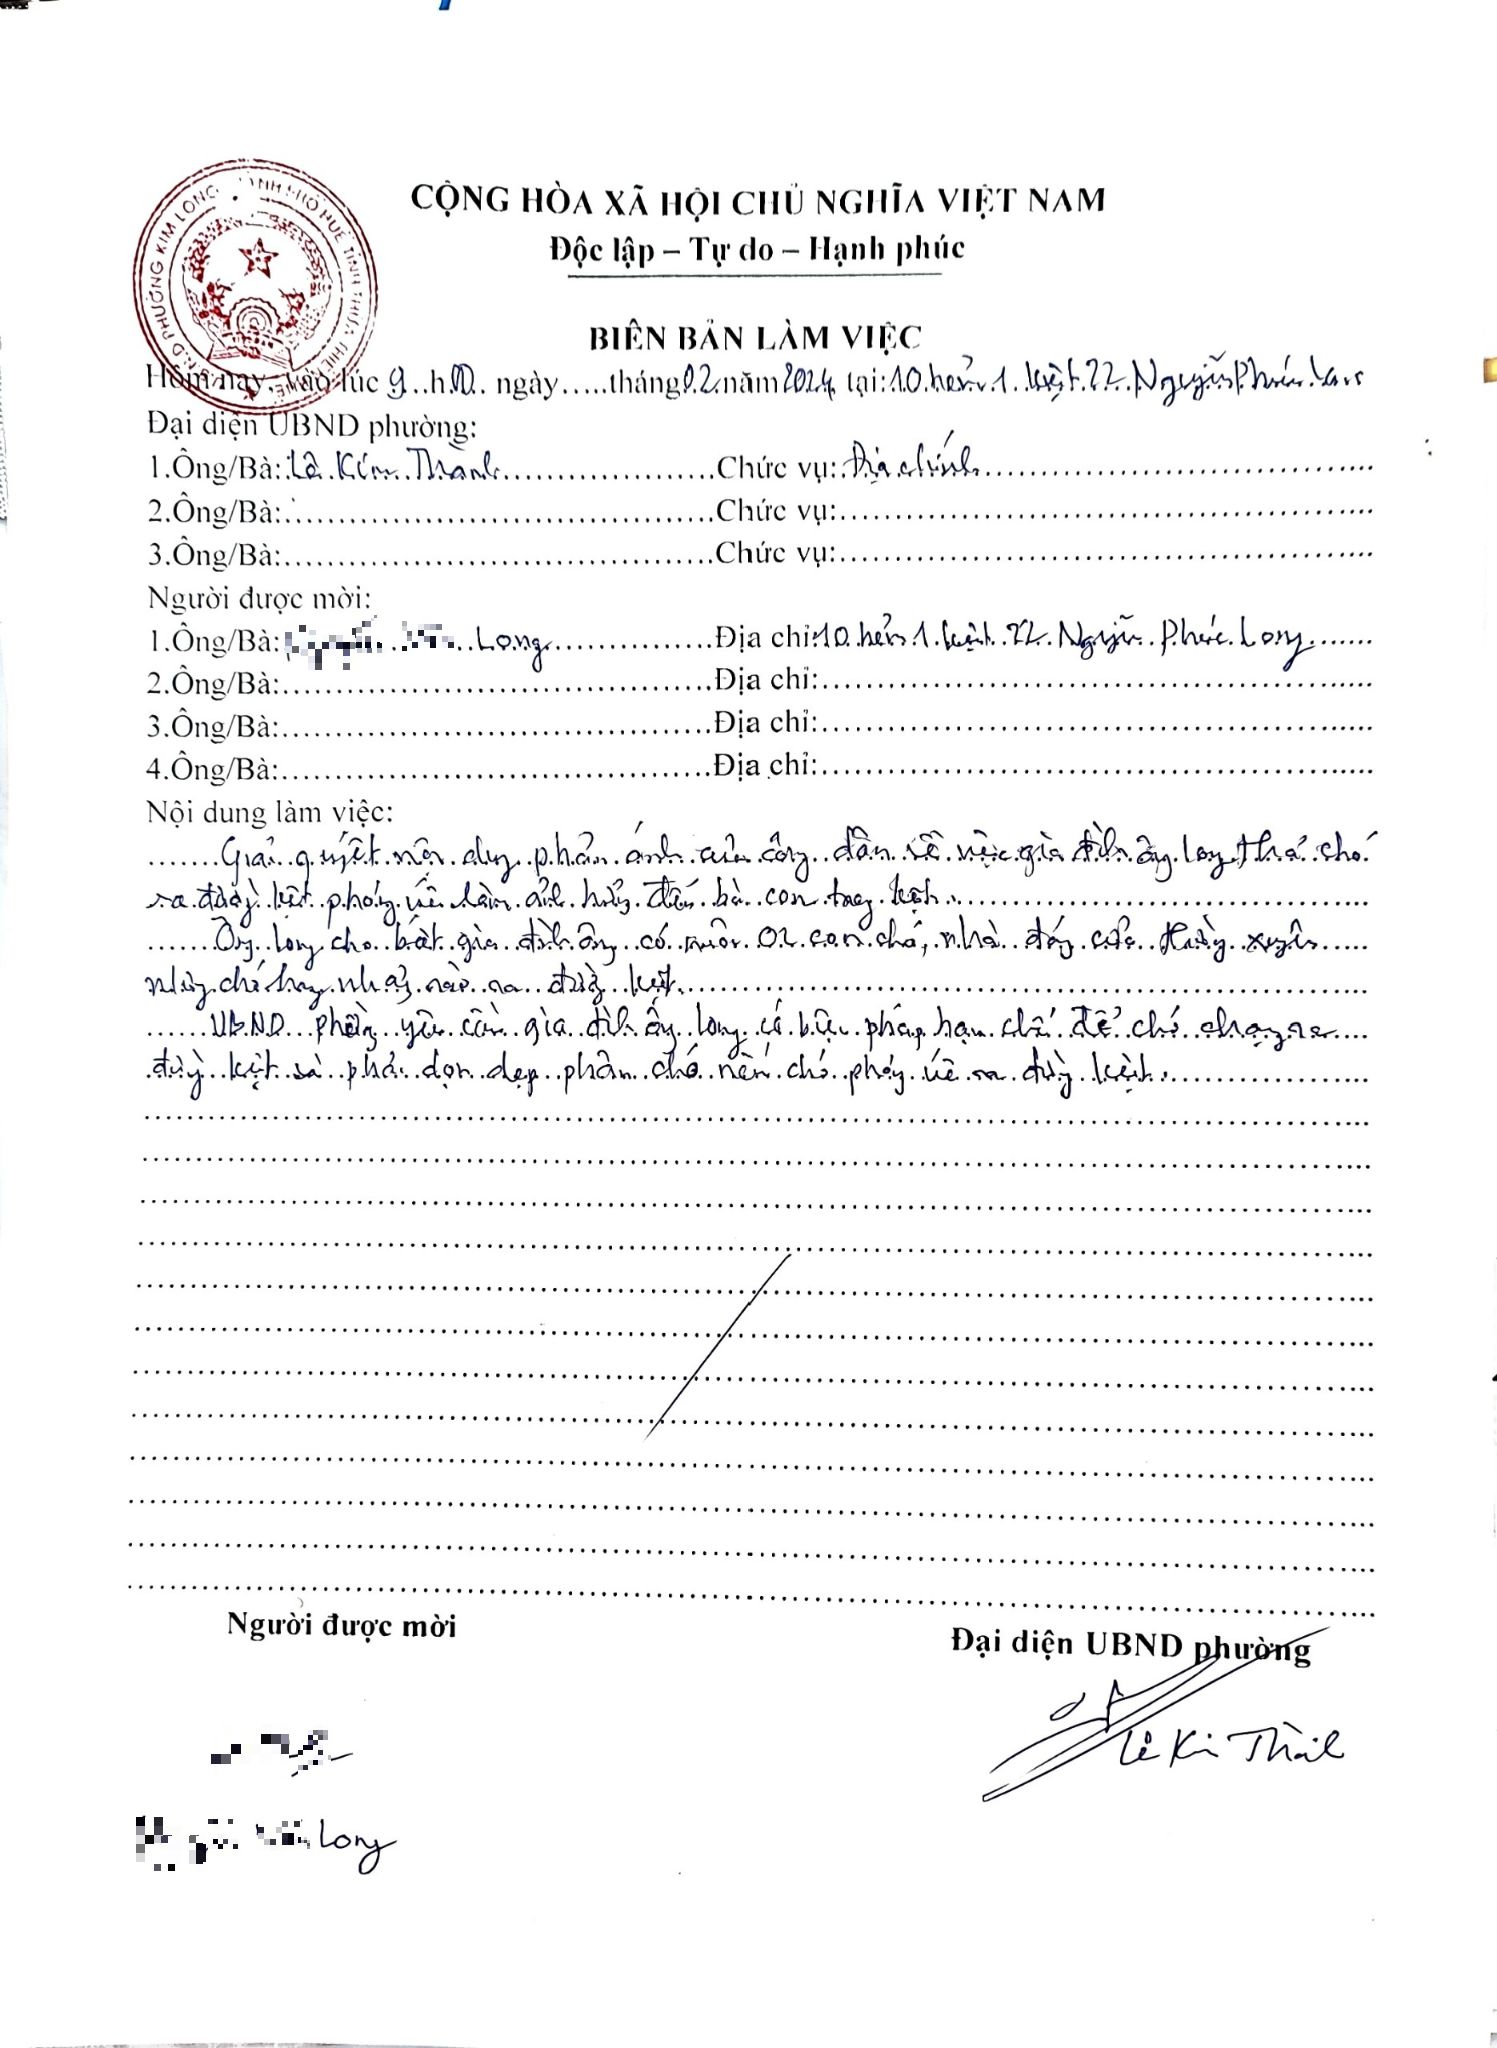 CỘNG HÒA XÃ HỘI CHỦ NGHĨA VIỆT NAM
Độc lập – Tự do – Hạnh phúc
U.B.N.D PHƯỜNG KIM LONG THÀNH PHỐ HUẾ TỈNH THỪA THIÊN
BIÊN BẢN LÀM VIỆC
Hôm nay, vào lúc 9 h 00 ngày.....tháng 02 năm 2024 tại: 10 hẻm 1 kiệt 22 Nguyễn Phúc Lan
Đại diện UBND phường:
1.Ông/Bà: Lê Kim Thành Chức vụ: Địa chính
2.Ông/Bà: Chức vụ:
3.Ông/Bà: Chức vụ:
Người được mời:
1.Ông/Bà: Long Địa chỉ: 10 hẻm 1 kiệt 22 Nguyễn Phúc Long
2.Ông/Bà: Địa chỉ:
3.Ông/Bà: Địa chỉ:
4.Ông/Bà: Địa chỉ:
Nội dung làm việc:
Giải quyết nội dung phản ánh của công dân về việc gia đình ông Long thả chó
ra đường kiệt phóng uế làm ảnh hưởng đến bà con trong kiệt.
Ông Long cho biết gia đình ông có nuôi 02 con chó, nhà đóng cửa thường xuyên
nhưng chó hay nhảy rào ra đường kiệt.
UBND phường yêu cầu gia đình ông Long có biện pháp hạn chế để chó chạy ra
đường kiệt và phải dọn dẹp phân chó nếu chó phóng uế ra đường kiệt.
Người được mời
Đại diện UBND phường
Lê Kim Thành
Long